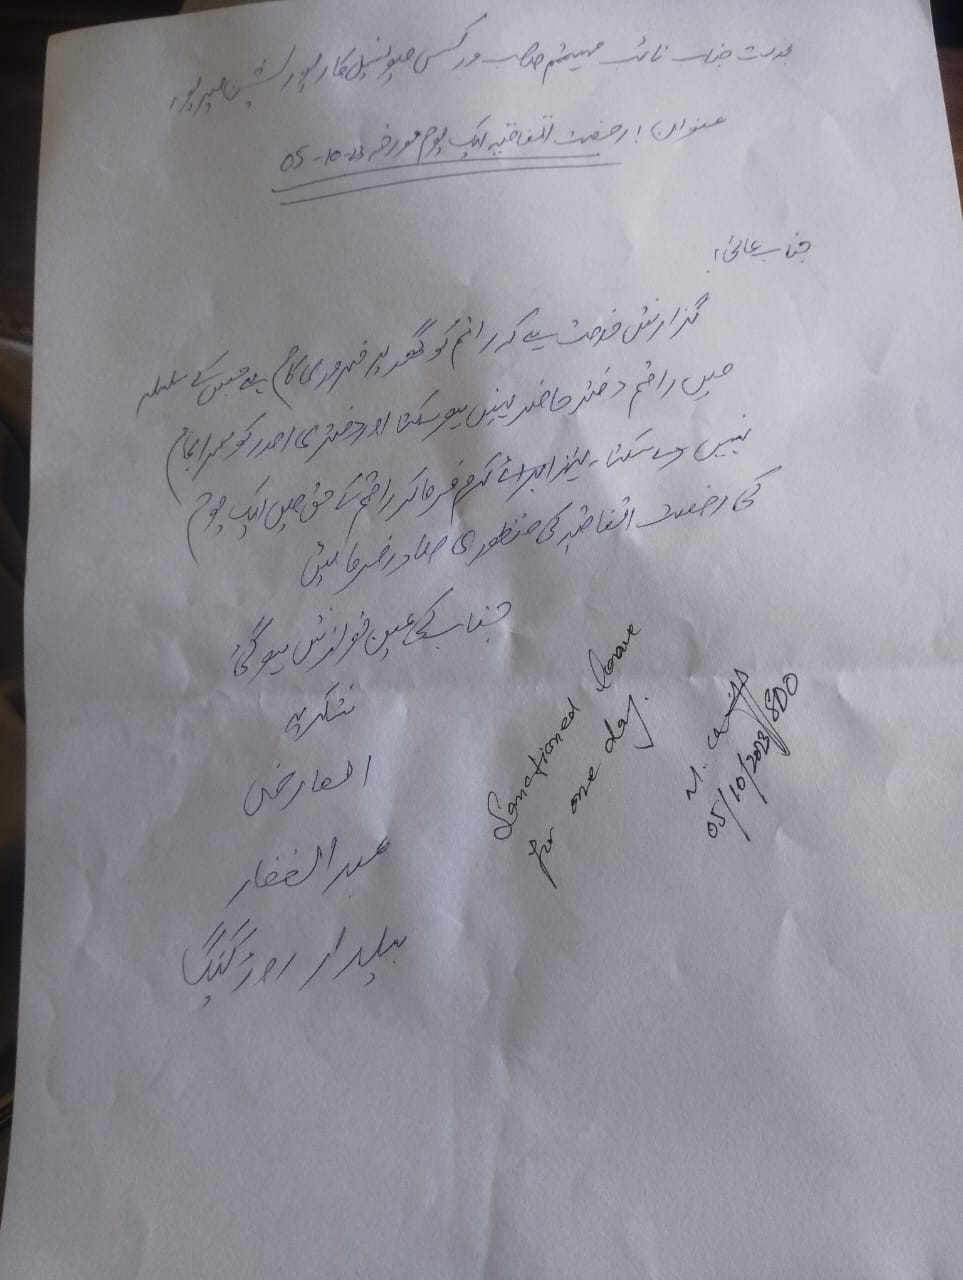 بخدمت جناب نائب مہتمم صاحب ورکس میونسپل کارپوریشن میرپور،
عنوان! رخصت اتفاقیہ ایک یوم مورخہ 23-10-05
جناب عالی!
گزارش خدمت ہے کہ راقم کو گھر پر ضروری کام ہے جس کے سلسلہ
میں راقم دفتر حاضر نہیں ہو سکتا اور دفتری امور کو سرانجام
نہیں دے سکتا۔ لہٰذا برائے کرم فرما کر راقم کے حق میں ایک یوم
کی رخصت اتفاقیہ کی منظوری صادر فرمائیں
جناب کی عین نوازش ہو گی،
شکریہ
العارض
عبدالغفار
بیلدار روڈ گینگ
Sanctioned leave
for one day.
05/10/2023/SDO